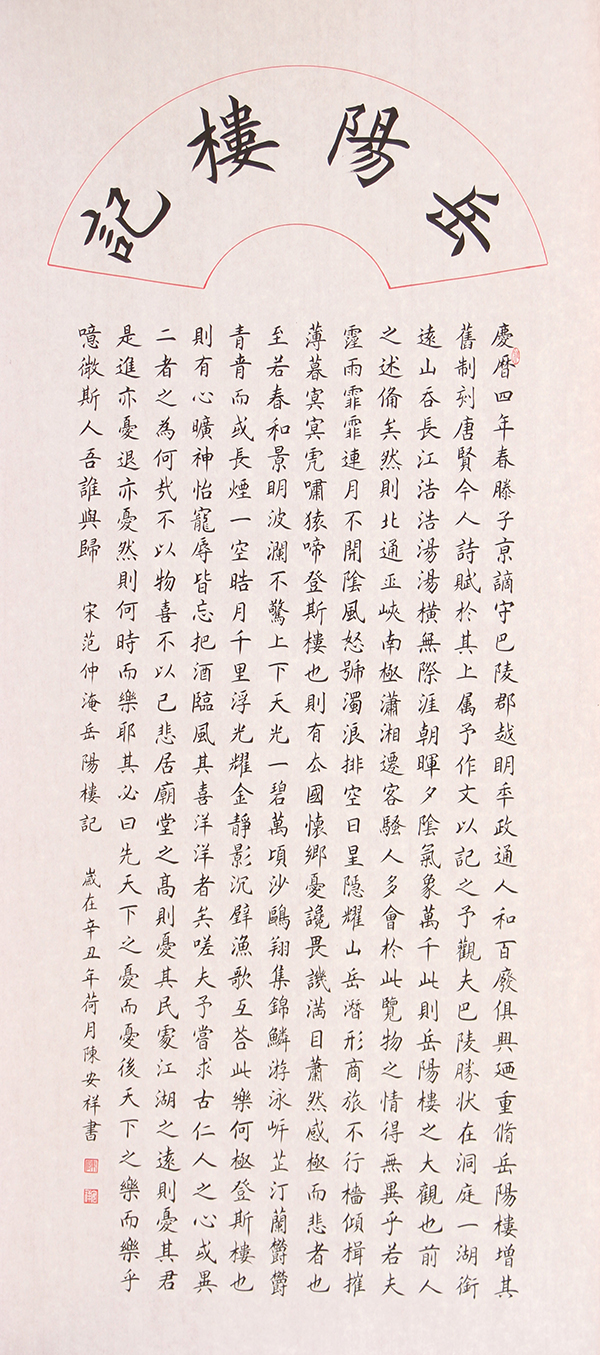 岳陽樓記
慶曆四年春滕子亰謫守巴陵郡越明秊政通人和百廢俱興廼重脩岳陽樓增其
舊制刻唐賢今人詩賦於其上属予作文以記之予觀夫巴陵勝狀在洞庭一湖銜
遠山吞長江浩浩湯湯橫無際涯朝暉夕陰氣象萬千此則岳陽樓之大觀也前人
之述備矣然則北通巫峽南極瀟湘遷客騷人多會於此覽物之情得無異乎若夫
霪雨霏霏連月不開陰風怒號濁浪排空日星隱耀山岳潛形商旅不行檣傾楫摧
薄暮冥冥虎嘯猿啼登斯樓也則有去國懷鄉憂讒畏譏滿目蕭然感極而悲者也
至若春和景明波瀾不驚上下天光一碧萬頃沙鷗翔集錦鱗游泳岸芷汀蘭鬱鬱
青青而或長煙一空皓月千里浮光耀金靜影沉璧漁歌互荅此樂何極登斯樓也
則有心曠神怡寵辱皆忘把酒臨風其喜洋洋者矣嗟夫予嘗求古仁人之心或異
二者之為何哉不以物喜不以己悲居廟堂之高則憂其民處江湖之遠則憂其君
是進亦憂退亦憂然則何時而樂耶其必曰先天下之憂而憂後天下之樂而樂乎
噫微斯人吾誰與歸 宋范仲淹岳陽樓記 歲在辛丑年荷月陳安祥書